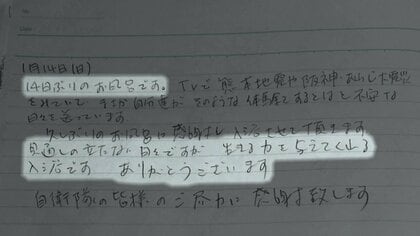 1月14日(日)
14日ぶりのお風呂です。 TVで熊本地震や阪神・あわじ大震災
をみていて まさか自分達が そのような体験をするとはと不安な
日々を送っています
久しぶりのお風呂に感謝し 入浴させて頂きます
見通しの立たない日々ですが 生きる力を与えてくれる
入浴です ありがとうございます
自衛隊の皆様のご尽力に感謝致します